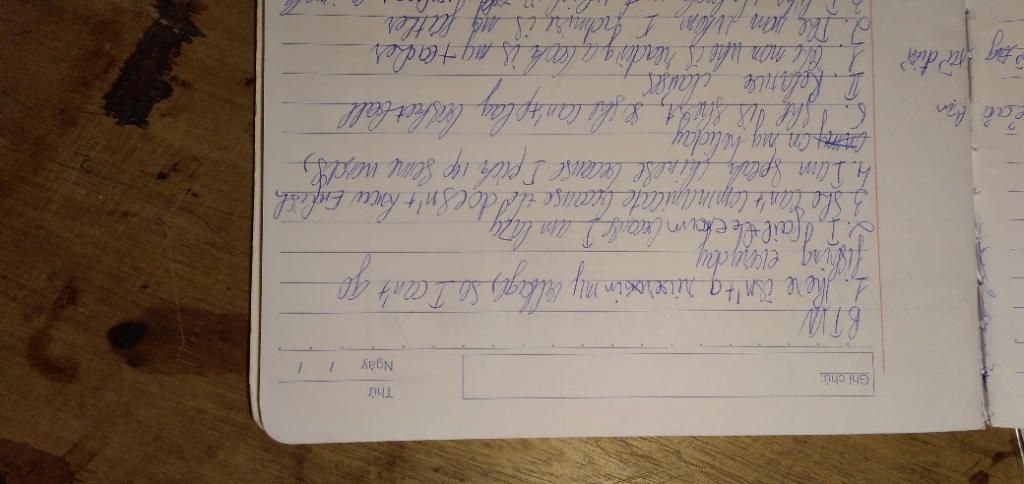 Thứ
Ghi chú:
Ngày / /
BTVN
1. There isn't a river in my village, so I can't go
fishing everyday
2. I fail the exam because I am lazy
3. She can't communicate because she doesn't know English
4. I am speak chinese because I pick up some words,
on my holiday
5. She is short, so she can't play basket ball
II. Relative clauses
1. The man who is reading a book is my teacher
2. The man whom I admire is my father
từ điển